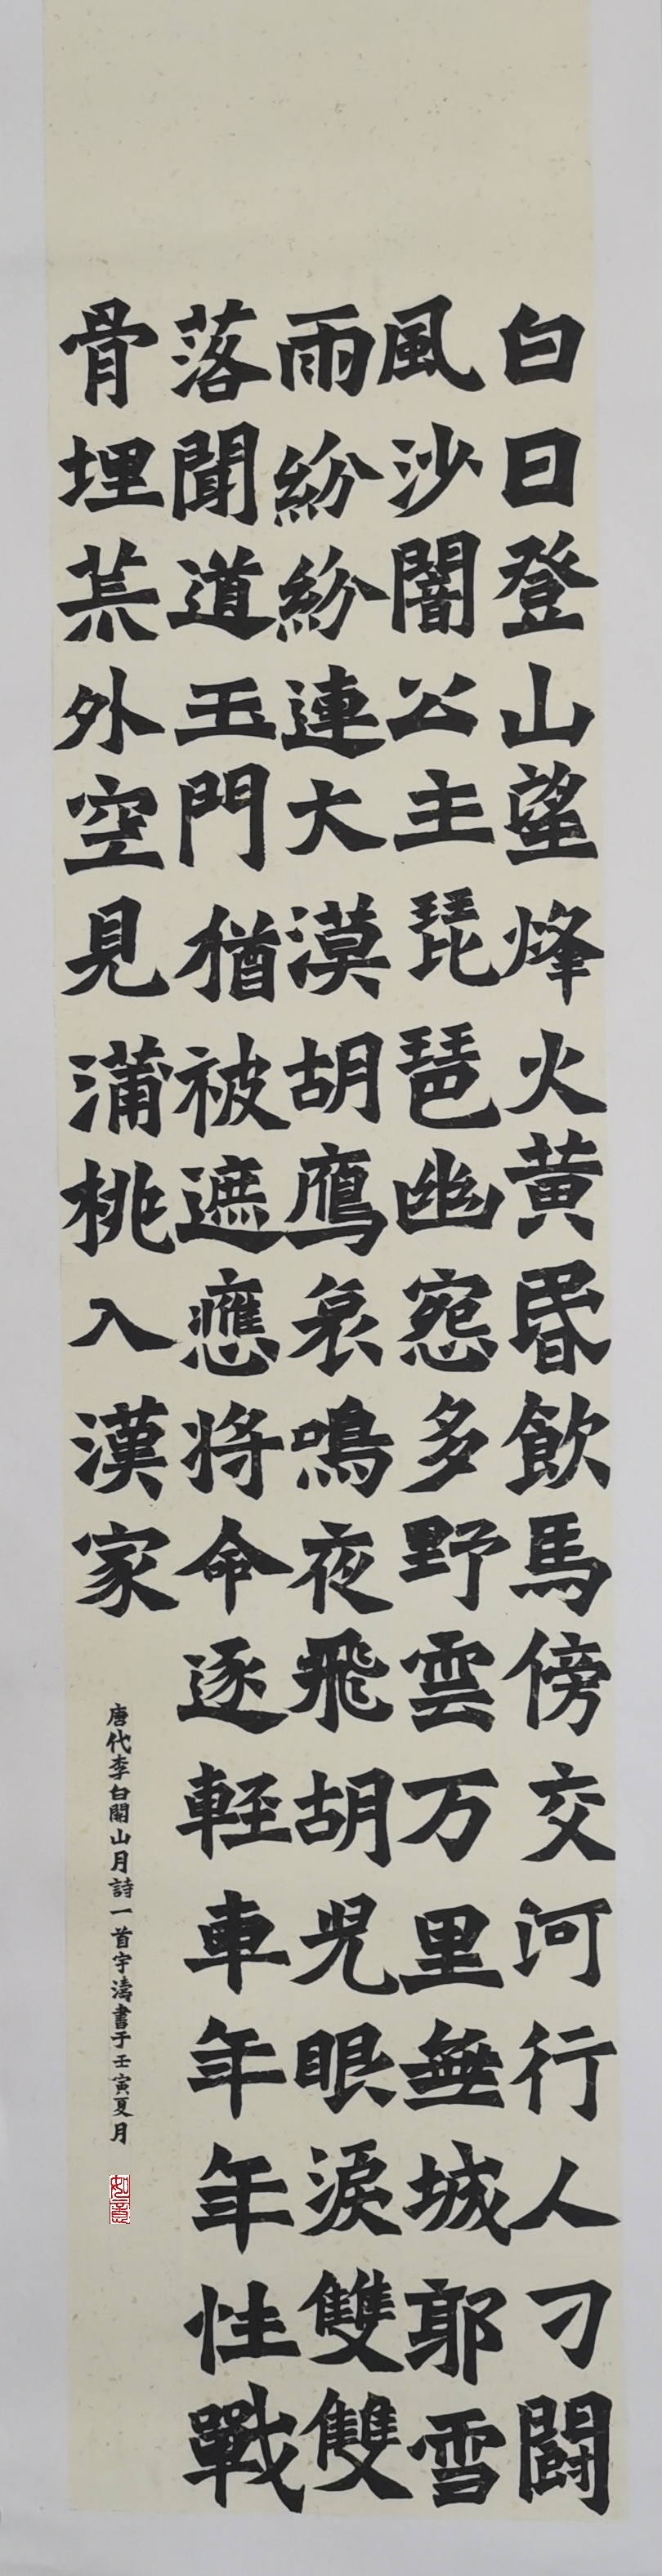 白日登山望烽火黄昏飲馬傍交河行人刁闘
風沙闇公主琵琶幽怨多野雲万里無城郭雪
雨紛紛連大漠胡鷹哀鳴夜飛胡児眼涙雙雙
落聞道玉門猶被遮應将命逐軽車年年性戰
骨埋荒外空見蒲桃入漢家
唐代李白開山月詩一首宇濤書于壬寅夏月
如意